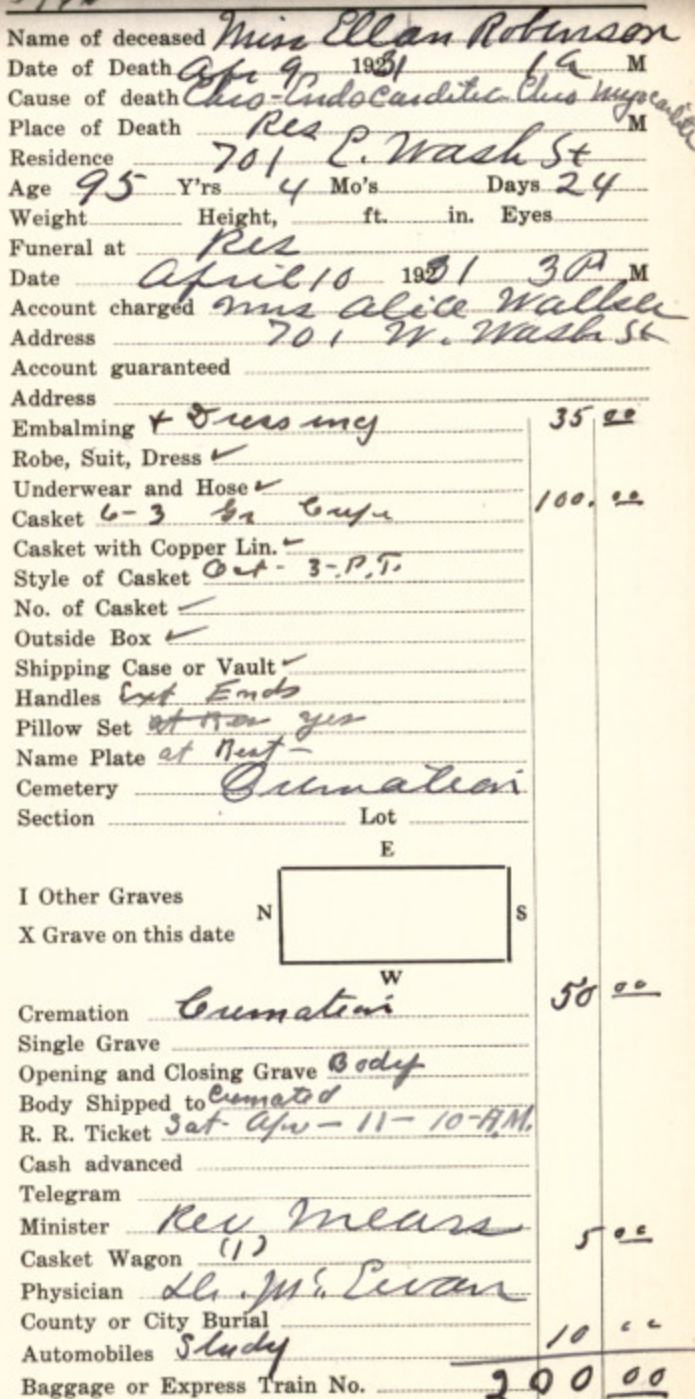 Name of deceased Miss Ellan Robinson
Date of Death Apr 9 1931 1 a M
Cause of death Chro-Endocarditis Chro Myocarditis
Place of Death Res M
Residence 701 E. Wash St
Age 95 Y'rs 4 Mo's Days 24
Weight Height, ft. in. Eyes
Funeral at Res
Date April 10 1931 3 P M
Account charged Mrs Alice Walker
Address 701 W. Wash St
Account guaranteed
Address
Embalming + Dressing 35 00
Robe, Suit, Dress ✓
Underwear and Hose ✓
Casket 6-3 Gr Crepe 100. 00
Casket with Copper Lin. ✓
Style of Casket Oct - 3-P.T.
No. of Casket ✓
Outside Box ✓
Shipping Case or Vault ✓
Handles Ext Ends
Pillow Set yes
Name Plate at Rest -
Cemetery Cremation
Section Lot
E
I Other Graves
N S
X Grave on this date
W
Cremation Cremation 50 00
Single Grave
Opening and Closing Grave Body
Body Shipped to Cremated
R. R. Ticket Sat - Apr - 11 - 10 - A.M.
Cash advanced
Telegram
Minister Rev Mears
Casket Wagon (1) 5 00
Physician Dr. Mc. Ewan
County or City Burial
Automobiles Study 10 00
Baggage or Express Train No. 200 00